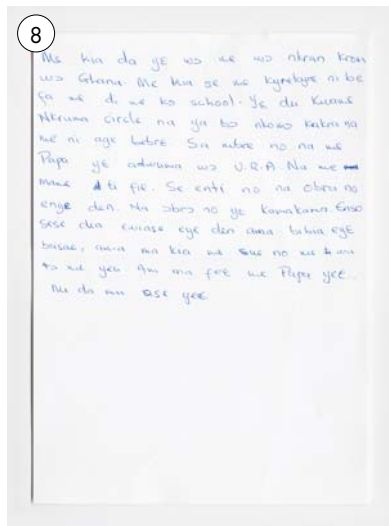 8
Me kia da yɛ wɔ me wɔ nkran Kron
wɔ Ghana. Me kia se me kyrekyre ni be
fa me di me ko school. Yɛ du Kwame
Nkruma circle na ya bɔ nkɔmɔ kakra na
me ni agɛ bebre. Sa mbre no na me
Papa yɛ adwuma wɔ V.R.A. Na me
mama ti fie. Se enti no na obra no
enyɛ den. Na obrɔ no yɛ kamakama. Enso
sese dia ewiase eyɛ den ama. bibia eyɛ
basaa, ama ma kia me
to me yeu. Am ma fɛɛ me Papa yeɛ.
Me da mu ase yeɛ